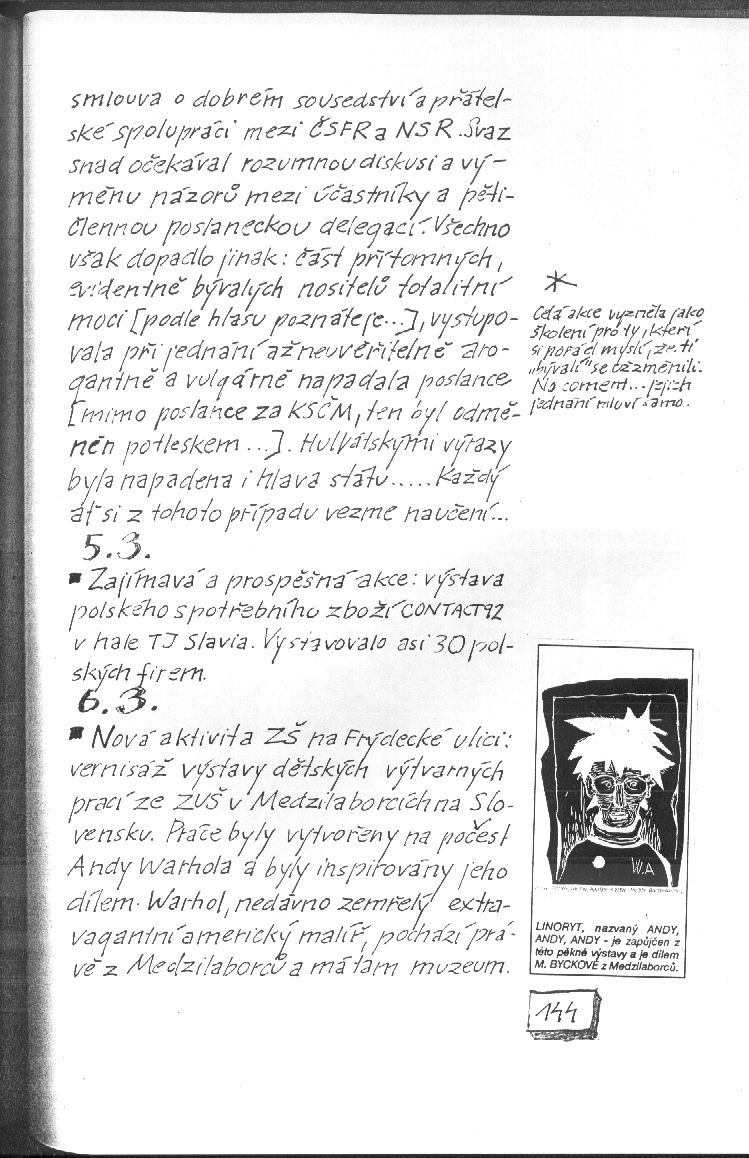 smlouva o dobrém sousedství a přátel-
ské spolupráci mezi ČSFR a NSR. Svaz
snad očekával rozumnou diskusi a vý-
měnu názorů mezi účastníky a pěti-
člennou poslaneckou delegací. Všechno
však dopadlo jinak: část přítomných,
evidentně bývalých nositelů totalitní
moci [podle hlasu poznáte je...], vystupo-
vala při jednání až neuvěřitelně aro-
gantně a vulgárně napadala poslance
[mimo poslance za KSČM, ten byl odmě-
něn potleskem ...]. Hulvátskými výrazy
byla napadena i hlava státu..... Každý
ať si z tohoto případu vezme naučení...
5.3.
▪ Zajímavá a prospěšná akce: výstava
polského spotřebního zboží CONTACT92
v hale TJ Slavia. Vystavovalo asi 30 pol-
ských firem.
6.3.
▪ Nová aktivita ZŠ na Frýdecké ulici:
vernisáž výstavy dětských výtvarných
prací ze ZUŠ v Medzilaborcích na Slo-
vensku. Práce byly vytvořeny na počest
Andy Warhola a byly inspirovány jeho
dílem. Warhol, nedávno zemřelý extra-
vagantní americký malíř, pochází prá-
vě z Medzilaborců a má tam muzeum.
*
Celá akce vyzněla jako
školení pro ty, kteří
si pořád myslí, že ti
„bývalí" se
No coment... jejich
jednání mluví samo.
W.A
LINORYT, nazvaný ANDY,
ANDY, ANDY - je zapůjčen z
této pěkné výstavy a je dílem
M. BYCKOVÉ z Medzilaborců.
144